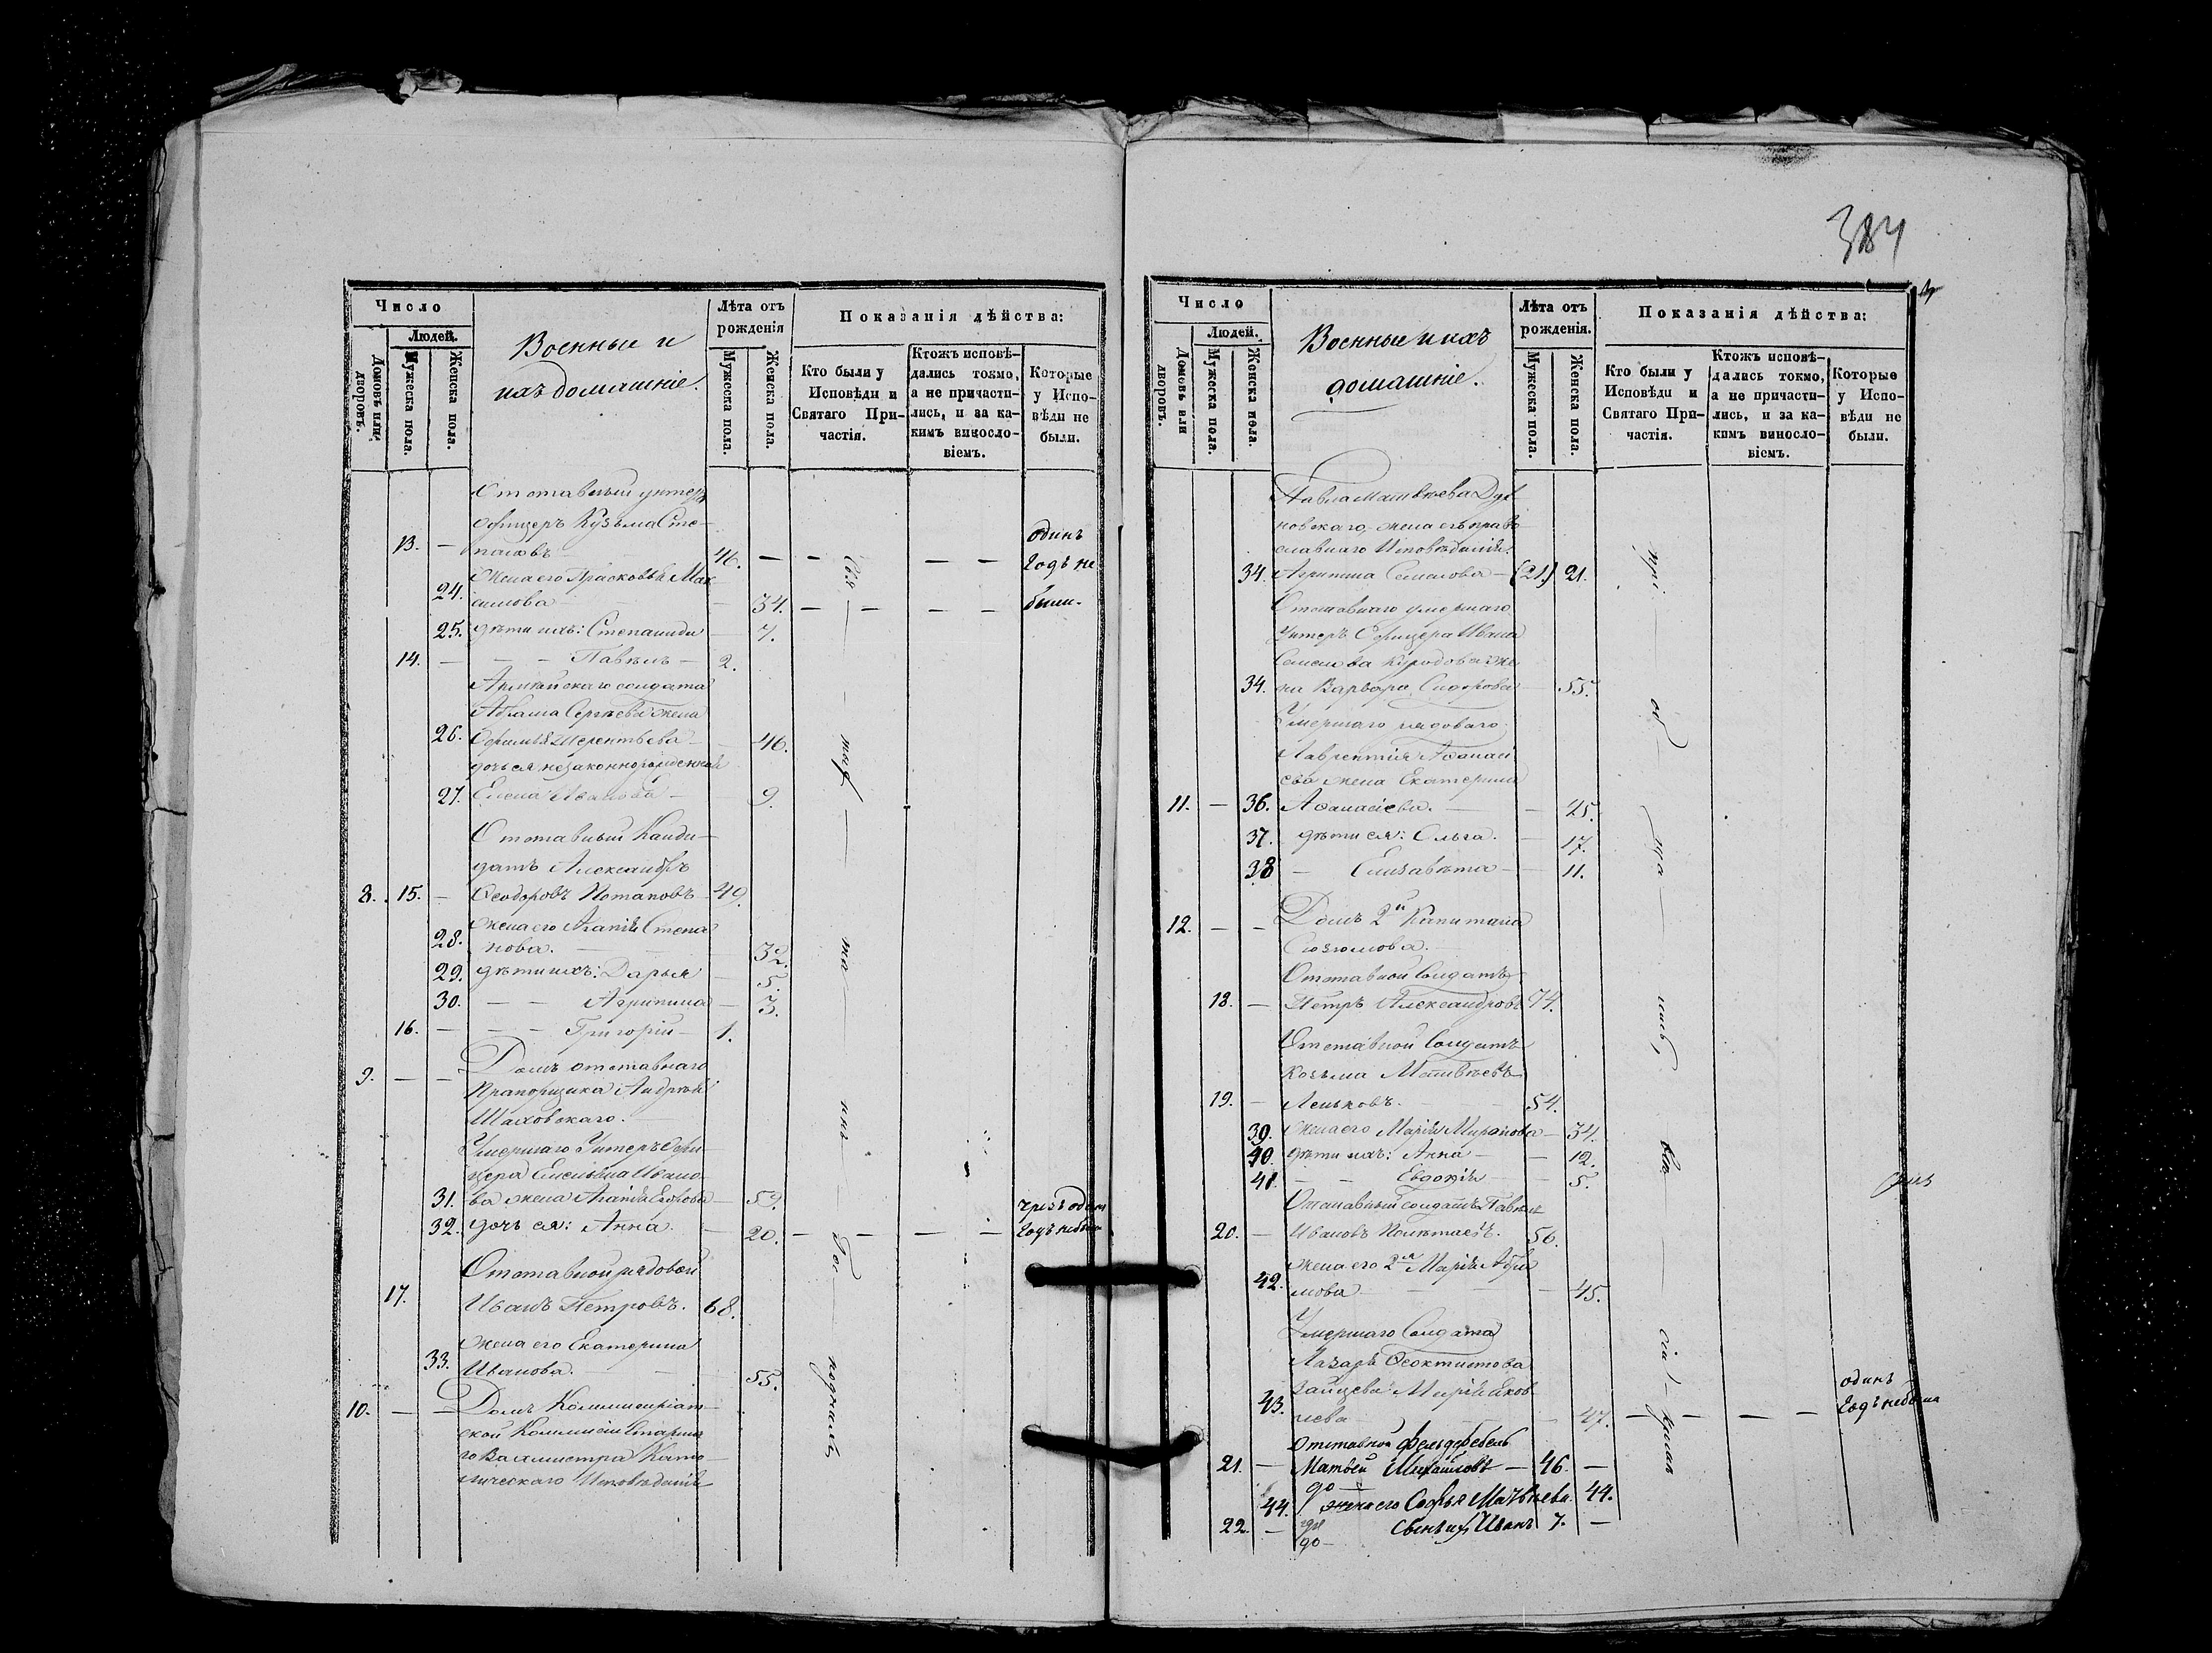 384
Число
Людей.
Домовъ или дворовъ.
Мужеска пола.
Женска пола.
Военные и
ихъ домашніе.
Лѣта отъ
рожденія
Мужеска пола.
Женска пола.
Показанія дѣйства:
Кто были у
Исповѣди и
Святаго При-
частія.
Ктожъ исповѣ-
дались токмо,
а не причасти-
лись, и за ка-
кимъ винословіемъ.
Которые
у Испо-
вѣди не
были.
Отставный унтеръ
офицеръ Кузьма Сте-
13. — пановъ 46. — — — — одинъ годъ не были.
жена его Прасковья Мак
24. симова — 34. — — — —
25. дѣти ихъ: Степанида — 7.
14. — — — Павелъ — 2.
Армейскаго солдата
Абрама Сергѣева жена
26. Офимья Терентьева — 46.
дочь ея незаконнорожденная
27. Елена Иванова — 9.
Отставный Канди-
датъ Александръ
8. 15. — Ѳеодоровъ Потаповъ — 49.
жена его Агапія Степа
28. нова. — 32.
29. дѣти ихъ: Дарья — 5.
30. — — Агрипина — 3.
16. — — — Григорій — 1.
9. — — Домъ отставнаго
Прапорщика Андрея
Шаховскаго.
Умершаго Унтеръ Офи
цера Емельяна Ивано
31. ва жена Агапія Егорова — 59.
32. дочь ея: Анна. — 20. — — — — чрезъ одинъ годъ не была
Отставной рядовой
17. Иванъ Петровъ. 68.
жена его Екатерина
33. Иванова. — 55.
10. — — Домъ Коммисиріат-
ской Коммисіи Старша
го Вахмистра Като-
лическаго Исповѣданія
Число
Людей.
Домовъ или дворовъ.
Мужеска пола.
Женска пола.
Военные и ихъ
домашніе.
Лѣта отъ
рожденія.
Мужеска пола.
Женска пола.
Показанія дѣйства:
Кто были у
Исповѣди и
Святаго При-
частія.
Ктожъ исповѣ-
дались токмо,
а не причасти-
лись, и за ка-
кимъ винословіемъ.
Которые
у Испо-
вѣди не
были.
Павла Матвѣева
новскаго, жена его право
славнаго Исповѣданія.
34. Агрипина Семенова — (21.) 21.
Отставнаго умершаго
Унтеръ Офицера Ивана
Семенова же
34. на Варвара Сидорова — 55.
Умершаго рядоваго
Лаврентія Аѳанасі
ева жена Екатерина
11. — 36. Аѳанасіева. — 45.
37. дѣти ея: Ольга. — 17.
38 — Елизавѣта — 11.
12. — — Домъ 2й Капитана
Сюзюмова.
Отставной Солдатъ
18. — Петръ Александровъ 74.
Отставной Солдатъ
Козьма Матвѣевъ
19. — Леньковъ. 54.
39. жена его Марія Миронова — 34.
40. дѣти ихъ: Анна — 12.
41. — — Евдокія — 5.
Отставный солдатъ Павелъ
20. — Ивановъ 56.
жена его 2я Марія
42. мова — 45.
Умершаго Солдата
Лазаря Ѳеоктистова
Зайцева Марія Яков
43. лева — 47. — — — — одинъ годъ не была
Отставной Фельдфебель
21. — Матвей Михайловъ — 46. —
44. жена его Софья Матвѣева. 44.
22. — Сынъ ихъ Иванъ 7. —